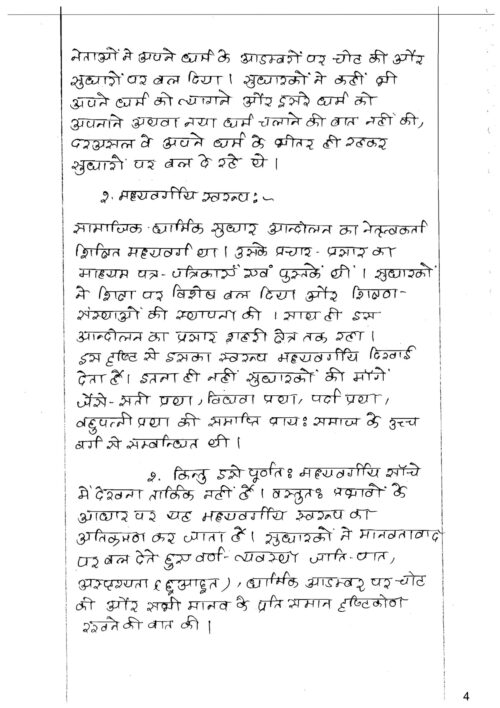 नेताओं ने अपने धर्म के आडम्बरों पर चोट की और
सुधारों पर बल दिया। सुधारकों ने कहीं भी
अपने धर्म को त्यागने और दूसरे धर्म को
अपनाने अथवा नया धर्म चलाने की बात नहीं की,
दरअसल वे अपने धर्म के भीतर ही रहकर
सुधारों पर बल दे रहे थे।
२. मध्यवर्गीय स्वरूप:~
सामाजिक-धार्मिक सुधार आन्दोलन का नेतृत्वकर्ता
शिक्षित मध्यवर्ग था। उसके प्रचार-प्रसार का
माध्यम पत्र-पत्रिकाएं एवं पुस्तकें थीं। सुधारकों
ने शिक्षा पर विशेष बल दिया और शिक्षण-
संस्थाओं की स्थापना की। साथ ही इस
आन्दोलन का प्रसार शहरी क्षेत्र तक रहा।
इस दृष्टि से इसका स्वरूप मध्यवर्गीय दिखाई
देता है। इतना ही नहीं सुधारकों की माँगें
जैसे- सती प्रथा, विधवा प्रथा, पर्दा प्रथा,
बहुपत्नी प्रथा की समाप्ति प्राय: समाज के उच्च
वर्ग से सम्बन्धित थी।
२. किन्तु इसे पूर्णतः मध्यवर्गीय साँचे
में देखना तार्किक नहीं है। वस्तुतः प्रभावों के
आधार पर यह मध्यवर्गीय स्वरूप का
अतिक्रमण कर जाता है। सुधारकों ने मानवतावाद
पर बल देते हुए वर्ण-व्यवस्था जाति-पात,
अस्पृश्यता (छुआछूत), धार्मिक आडम्बर पर चोट
की और सभी मानव के प्रति समान दृष्टिकोण
रखने की बात की।
4